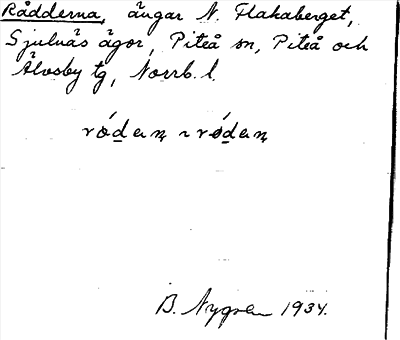 Rådderna, ängar N. Flakaberget,
Sjulnäs ägor, Piteå sn, Piteå och
Älvsby tg, Norrb. l.
B. Nygren 1934.